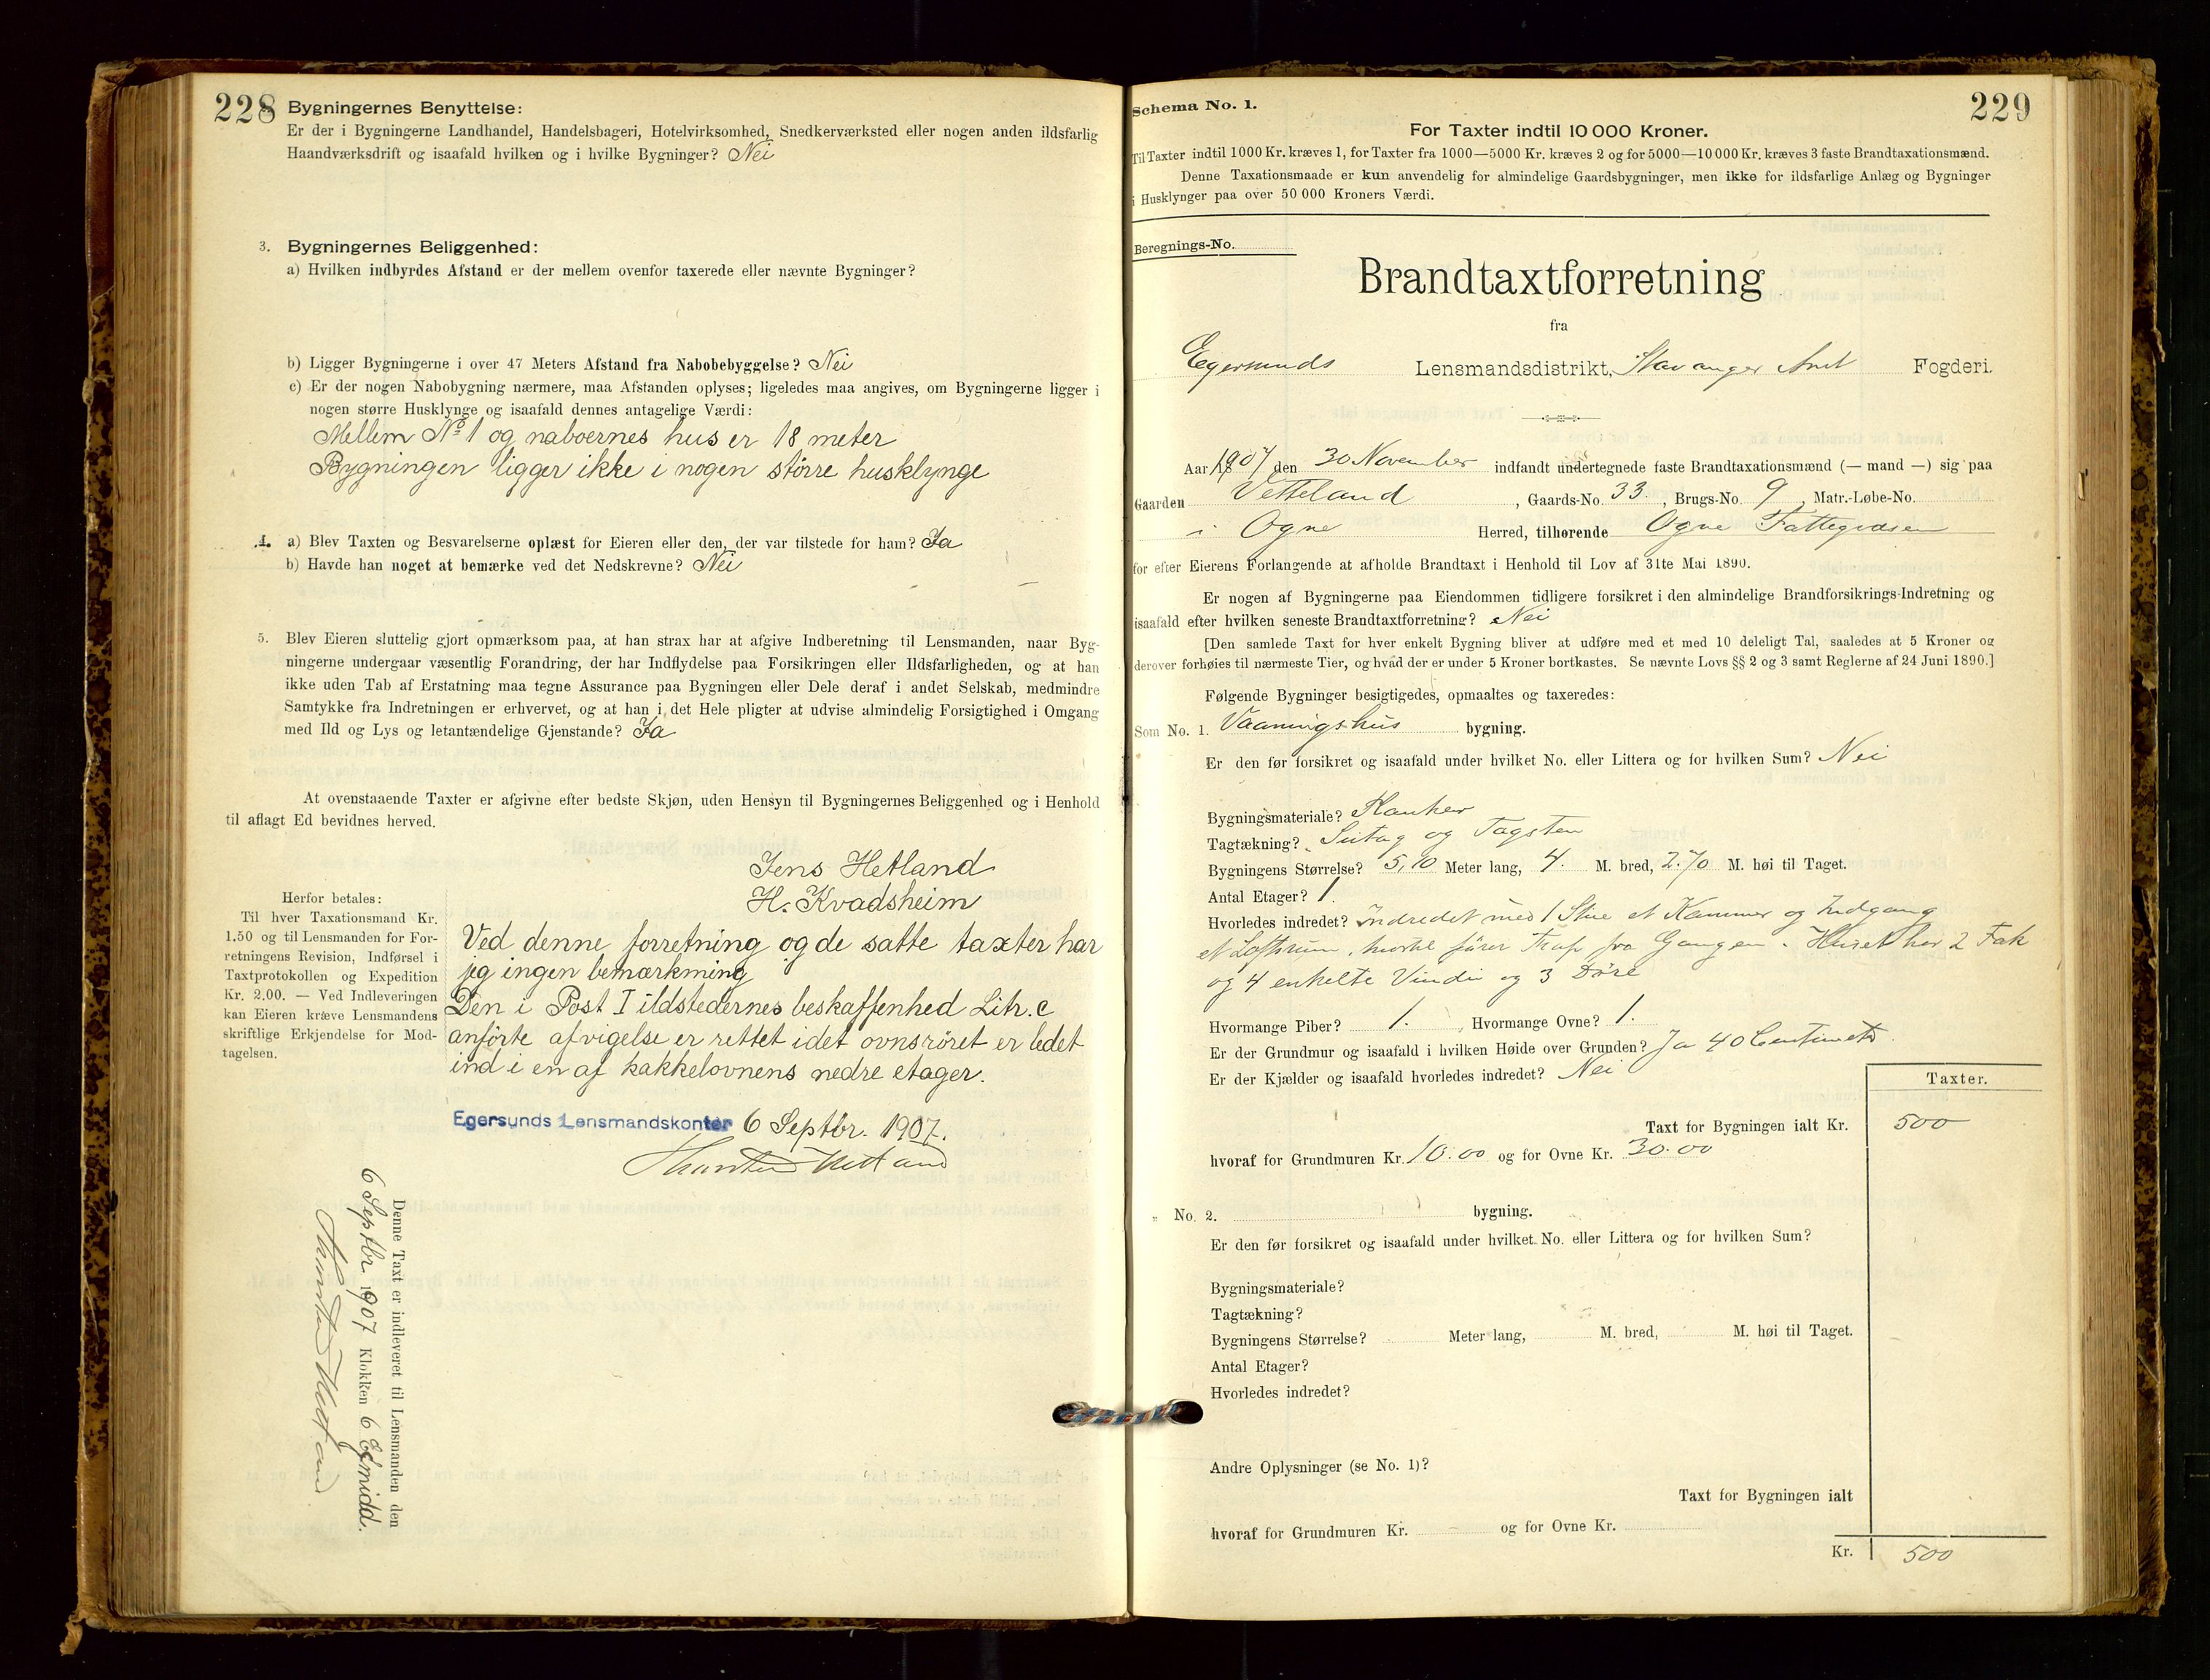 228
Bygningernes Benyttelse:
Er der i Bygningerne Landhandel, Handelsbageri, Hotelvirksomhed, Snedkerværksted eller nogen anden ildsfarlig
Haandværksdrift og isaafald hvilken og i hvilke Bygninger? Nei
3. Bygningernes Beliggenhed:
a) Hvilken indbyrdes Afstand er der mellem ovenfor taxerede eller nævnte Bygninger?
b) Ligger Bygningerne i over 47 Meters Afstand fra Nabobebyggelse? Nei
c) Er der nogen Nabobygning nærmere, maa Afstanden oplyses; ligeledes maa angives, om Bygningerne ligger i
nogen større Husklynge og isaafald dennes antagelige Værdi:
Mellem No 1 og naboernes hus er 18 meter
Bygningen ligger ikke i nogen større husklynge
4. a) Blev Taxten og Besvarelserne oplæst for Eieren eller den, der var tilstede for ham? Ja
b) Havde han noget at bemærke ved det Nedskrevne? Nei
5. Blev Eieren sluttelig gjort opmærksom paa, at han strax har at afgive Indberetning til Lensmanden, naar Byg-
ningerne undergaar væsentlig Forandring, der har Indflydelse paa Forsikringen eller Ildsfarligheden, og at han
ikke uden Tab af Erstatning maa tegne Assurance paa Bygningen eller Dele deraf i andet Selskab, medmindre
Samtykke fra Indretningen er erhvervet, og at han i det Hele pligter at udvise almindelig Forsigtighed i Omgang
med Ild og Lys og letantændelige Gjenstande? Ja
At ovenstaaende Taxter er afgivne efter bedste Skjøn, uden Hensyn til Bygningernes Beliggenhed og i Henhold
til aflagt Ed bevidnes herved.
Jens Hetland
H. Kvadsheim
Herfor betales:
Til hver Taxationsmand Kr.
1.50 og til Lensmanden for For-
retningens Revision, Indførsel i
Taxtprotokollen og Expedition
Kr. 2.00. — Ved Indleveringen
kan Eieren kræve Lensmandens
skriftlige Erkjendelse for Mod-
tagelsen.
Ved denne forretning og de satte taxter har
jeg ingen bemærkning
Den i Post I ildstedernes beskaffenhed Litr. c
anførte afvigelse er rettet idet ovnsrøret er ledet
ind i en af kakkelovnens nedre etager.
Egersunds Lensmandskontor 6 Septbr. 1907.
Denne Taxt er indleveret til Lensmanden den
6 Septbr 1907 Klokken 6 Efmidd.
229
Schema No. 1.
For Taxter indtil 10 000 Kroner.
Til Taxter indtil 1000 Kr. kræves 1, for Taxter fra 1000—5000 Kr. kræves 2 og for 5000—10 000 Kr. kræves 3 faste Brandtaxationsmænd.
Denne Taxationsmaade er kun anvendelig for almindelige Gaardsbygninger, men ikke for ildsfarlige Anlæg og Bygninger
i Husklynger paa over 50 000 Kroners Værdi.
Beregnings-No.
Brandtaxtforretning
fra
Egersunds Lensmandsdistrikt, Stavanger Amt Fogderi.
Aar 1907 den 30 November indfandt undertegnede faste Brandtaxationsmænd (— mand —) sig paa
Gaarden Vetteland, Gaards-No. 33, Brugs-No. 9, Matr.-Løbe-No.
i Ogne Herred, tilhørende Ogne Fattegvæsen
for efter Eierens Forlangende at afholde Brandtaxt i Henhold til Lov af 31te Mai 1890.
Er nogen af Bygningerne paa Eiendommen tidligere forsikret i den almindelige Brandforsikrings-Indretning og
isaafald efter hvilken seneste Brandtaxtforretning? Nei
[Den samlede Taxt for hver enkelt Bygning bliver at udføre med et med 10 deleligt Tal, saaledes at 5 Kroner og
derover forhøies til nærmeste Tier, og hvad der er under 5 Kroner bortkastes. Se nævnte Lovs §§ 2 og 3 samt Reglerne af 24 Juni 1890.]
Følgende Bygninger besigtigedes, opmaaltes og taxeredes:
Som No. 1. Vaaningshus bygning.
Er den før forsikret og isaafald under hvilket No. eller Littera og for hvilken Sum? Nei
Bygningsmateriale? Planker
Tagtækning? Sutag og Tagsten
Bygningens Størrelse? 5,10 Meter lang, 4. M. bred, 2.70 M. høi til Taget.
Antal Etager? 1.
Hvorledes indredet? Indredet med 1 Stue et Kammer og Indgang
et Loftsrum, hvortil fører Trap fra Gangen. Huset har 2 Fak
og 4 enkelte Vinduer og 3 Døre
Hvormange Piber? 1. Hvormange Ovne? 1.
Er der Grundmur og isaafald i hvilken Høide over Grunden? Ja 40 Centimeter
Er der Kjælder og isaafald hvorledes indredet? Nei
Taxter.
Taxt for Bygningen ialt Kr. 500
hvoraf for Grundmuren Kr. 10.00 og for Ovne Kr. 30.00
" No. 2. bygning.
Er den før forsikret og isaafald under hvilket No. eller Littera og for hvilken Sum?
Bygningsmateriale?
Tagtækning?
Bygningens Størrelse? Meter lang, M. bred, M. høi til Taget.
Antal Etager?
Hvorledes indredet?
Andre Oplysninger (se No. 1)?
Taxt for Bygningen ialt
hvoraf for Grundmuren Kr. og for Ovne Kr.
Kr. 500